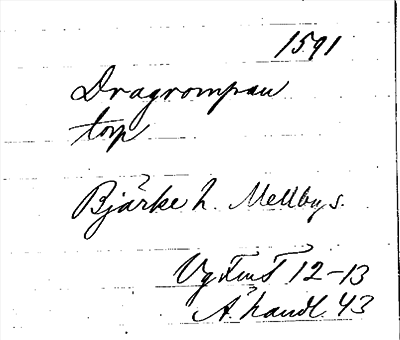 1591
Dragrompan
torp
Bjärke h. Mellby s.
Vg FmT 12-13
A. handl. 43